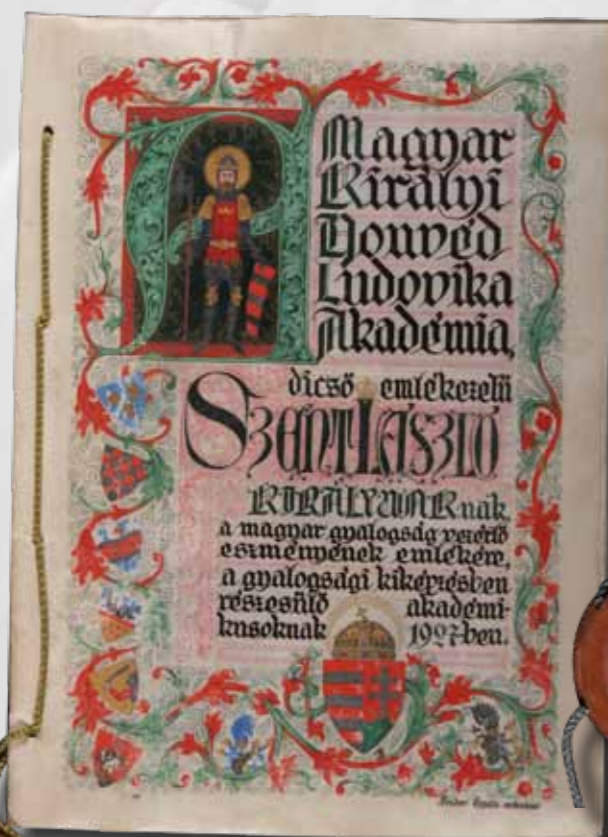 A Magyar
Királyi
Honvéd
Ludovika
Akadémia,
dicső emlékezetű
SZENT LÁSZLÓ
KIRÁLYUNKnak,
a magyar gyalogság vezérlő
eszményének emlékére,
a gyalogsági kiképzésben
részesülő akadémi-
kusoknak 1927-ben.